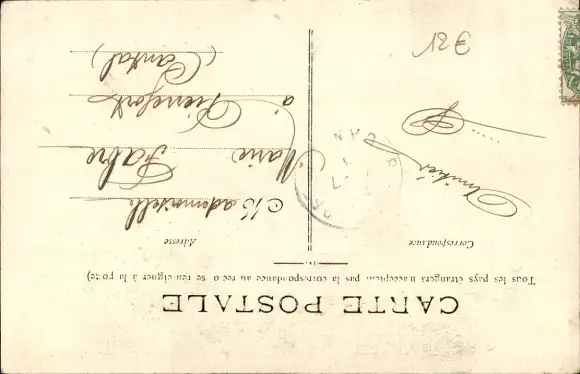 CARTE POSTALE
Tous les pays étrangers n'acceptent pas la correspondance au recto se renseigner à la poste)
Correspondance
Adresse
Amitiés
Mademoiselle
Marie Fabre
à Pierrefort
(Cantal)
E 21